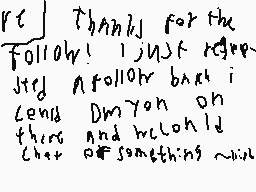 re Thanks for the
follow! I just reque-
sted a follow back i
could DM you on
there and we could
chat or something